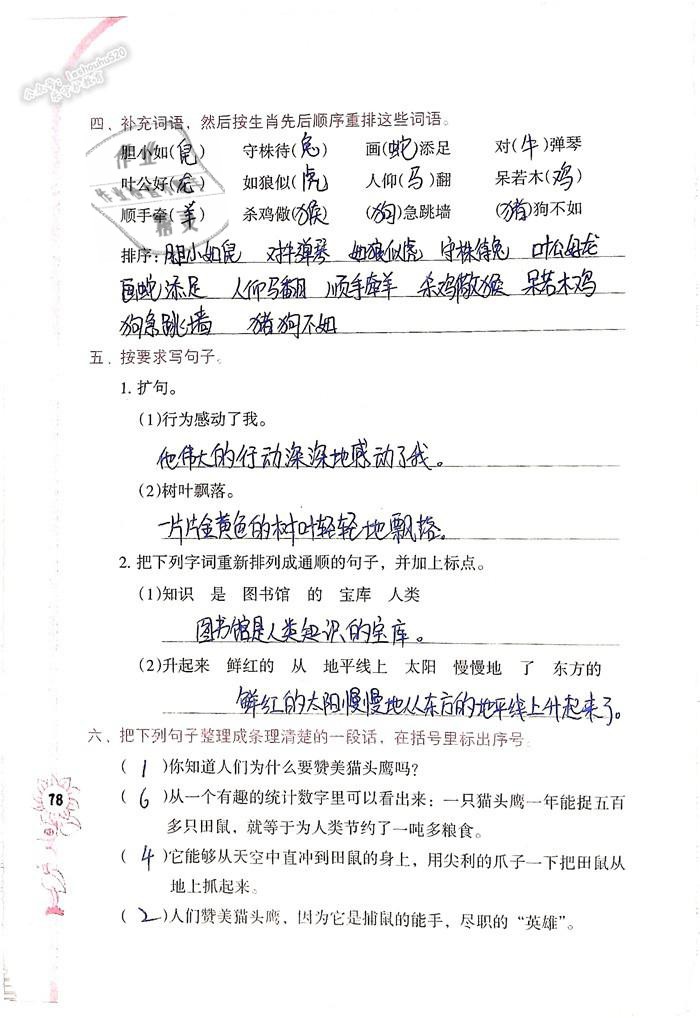 公众号: leshouhu520
乐守护教育
四、补充词语，然后按生肖先后顺序重排这些词语。
胆小如(鼠) 守株待(兔) 画(蛇)添足 对(牛)弹琴
叶公好(龙) 如狼似(虎) 人仰(马)翻 呆若木(鸡)
顺手牵(羊) 杀鸡儆(猴) (狗)急跳墙 (猪)狗不如
排序：胆小如鼠 对牛弹琴 如狼似虎 守株待兔 叶公好龙
画蛇添足 人仰马翻 顺手牵羊 杀鸡儆猴 呆若木鸡
狗急跳墙 猪狗不如
五、按要求写句子。
1. 扩句。
(1)行为感动了我。
他伟大的行动深深地感动了我。
(2)树叶飘落。
一片片金黄色的树叶轻轻地飘落。
2. 把下列字词重新排列成通顺的句子，并加上标点。
(1)知识 是 图书馆 的 宝库 人类
图书馆是人类知识的宝库。
(2)升起来 鲜红的 从 地平线上 太阳 慢慢地 了 东方的
鲜红的太阳慢慢地从东方的地平线上升起来了。
六、把下列句子整理成条理清楚的一段话，在括号里标出序号。
( 1 )你知道人们为什么要赞美猫头鹰吗？
( 6 )从一个有趣的统计数字里可以看出来：一只猫头鹰一年能捉五百
多只田鼠，就等于为人类节约了一吨多粮食。
( 4 )它能够从天空中直冲到田鼠的身上，用尖利的爪子一下把田鼠从
地上抓起来。
( 2 )人们赞美猫头鹰，因为它是捕鼠的能手，尽职的“英雄”。
78